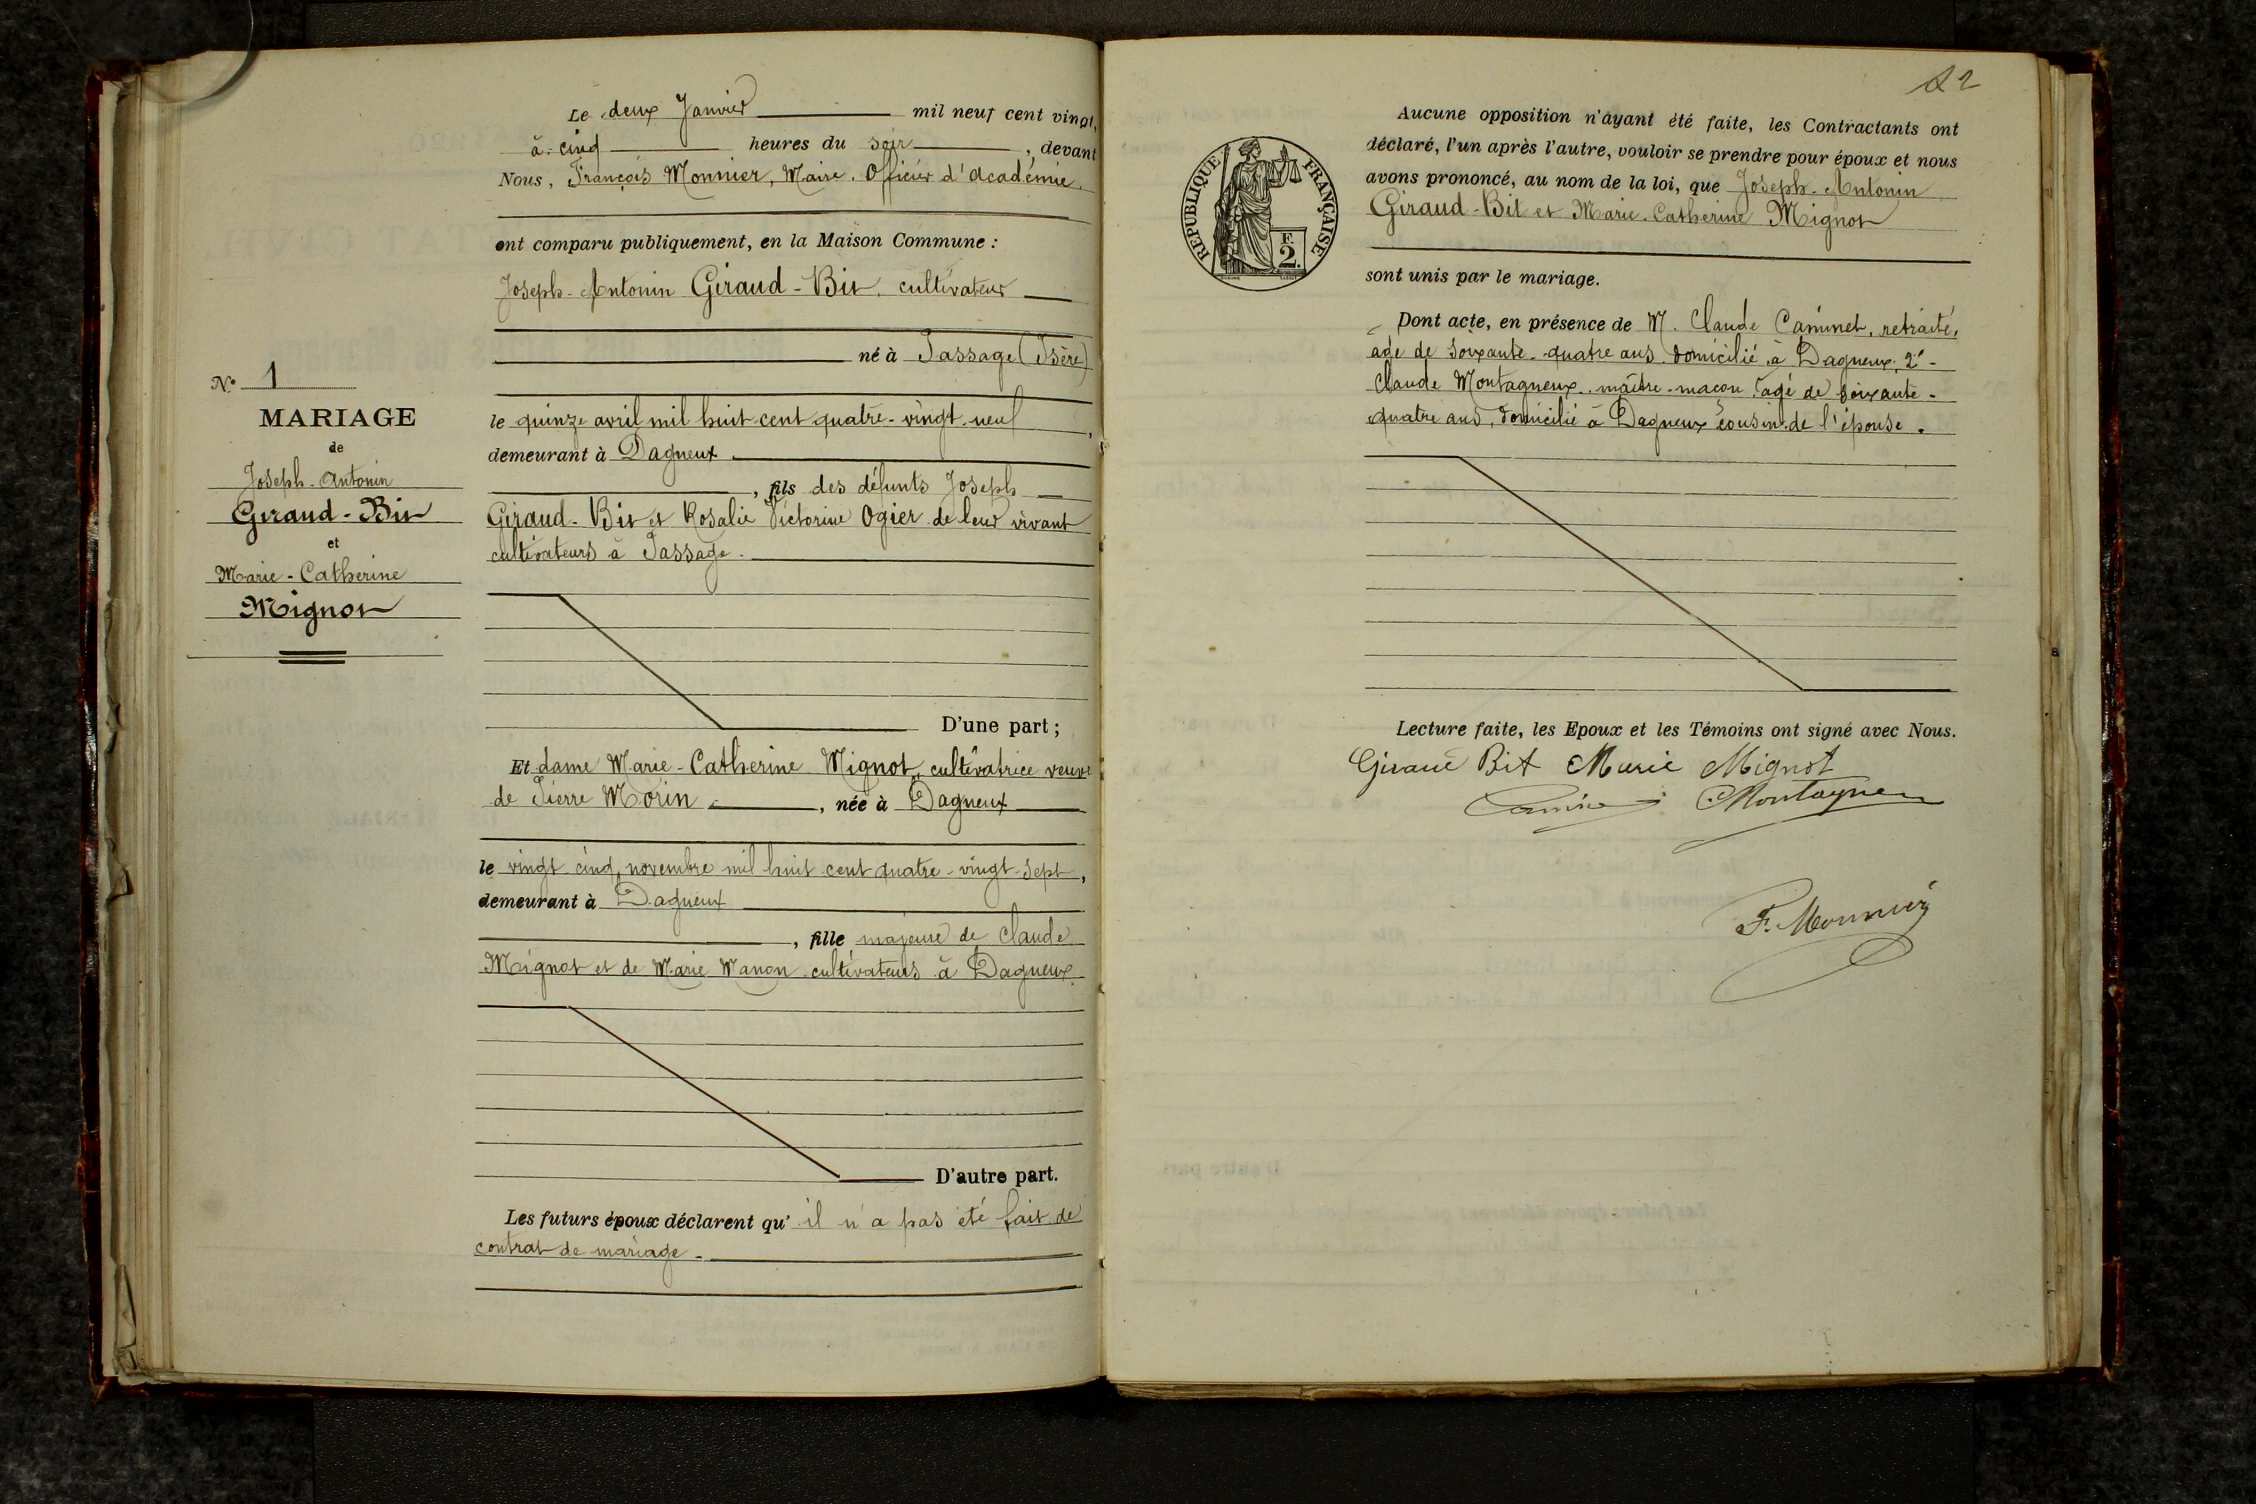 Le deux Janvier mil neuf cent vingt,
à cinq heures du soir, devant
Nous, François Monnier, Maire. Officier d'académie.
ont comparu publiquement, en la Maison Commune :
Joseph-Antonin Giraud-Bit, cultivateur
né à Passage (Isère)
le quinze avril mil huit cent quatre-vingt-neuf,
demeurant à Dagneux
, fils des défunts Joseph
Giraud-Bit et Rosalie Victorine Ogier de leur vivant
cultivateurs à Passage.
D'une part ;
Et dame Marie-Catherine Mignot, cultivatrice veuve
de Pierre Morin, née à Dagneux
le vingt cinq novembre mil huit cent quatre-vingt-sept,
demeurant à Dagneux
, fille majeure de Claude
Mignot et de Marie Manon cultivateurs à Dagneux.
D'autre part.
Les futurs époux déclarent qu'il n'a pas été fait de
contrat de mariage.
N° 1
MARIAGE
de
Joseph-Antonin
Giraud-Bit
et
Marie-Catherine
Mignot
22
REPUBLIQUE FRANÇAISE
F.
2.
Aucune opposition n'ayant été faite, les Contractants ont
déclaré, l'un après l'autre, vouloir se prendre pour époux et nous
avons prononcé, au nom de la loi, que Joseph-Antonin
Giraud-Bit et Marie-Catherine Mignot
sont unis par le mariage.
Dont acte, en présence de M. Claude Caminet, retraité,
agé de soixante-quatre ans domicilié à Dagneux, 2°-
Claude Montagneux, maître-maçon agé de soixante-
quatre ans, domicilié à Dagneux cousin de l'épouse.
Lecture faite, les Epoux et les Témoins ont signé avec Nous.
Giraud Bit Marie Mignot
Montagneux
F. Monnier